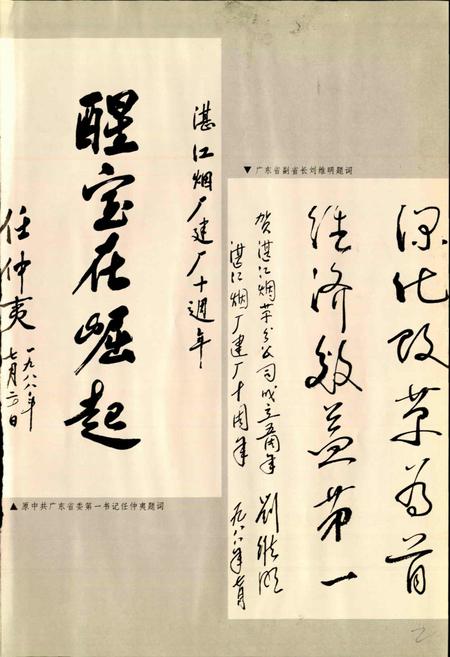 湛江烟厂建厂十週年
醒宝在崛起
任仲夷
一九八八年
七月六日
▲ 原中共广东省委第一书记任仲夷题词
▼ 广东省副省长刘维明题词
深化改革为首
经济效益第一
贺湛江烟草分公司成立五周年
湛江烟厂建厂十周年
刘维明
一九八八年七月
2